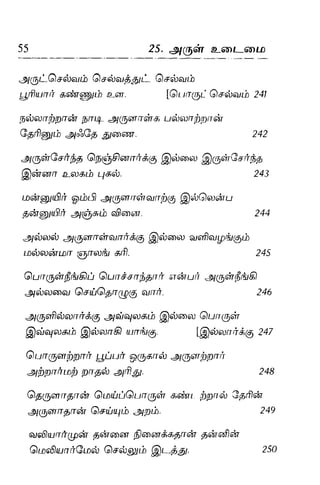 55 25. அருள் உடைமை
அருட்செல்வம் செல்வத்துட் செல்வம்
பூரியார் கண்ணும் உள. [பொருட் செல்வம் 241
நல்லாற்றான் நாடி அருளாள்க பல்லாற்றான்
தேரினும் அஃதே துணை. 242
அருள்சேர்ந்த நெஞ்சினார்க்கு இல்லை இருள்சேர்ந்த
இன்னா உலகம் புகல். 243
மன்னுயிர் ஓம்பி அருளாள்வாற்கு இல்லென்ப
தன்னுயிர் அஞ்சும் வினை. 244
அல்லல் அருளாள்வார்க்கு இல்லை வளிவழங்கும்
மல்லன்மா ஞாலங் கரி. 245
பொருள்நீங்கிப் பொச்சாந்தார் என்பர் அருள்நீங்கி
அல்லவை செய்தொழுகு வார். 246
அருளில்லார்க்கு அவ்வுலகம் இல்லை பொருள்
இவ்வுலகம் இல்லாகி யாங்கு. [இல்லார்க்கு 247
பொருளற்றார் பூப்பர் ஒருகால் அருளற்றார்
அற்றார்மற் றாதல் அரிது. 248
தெருளாதான் மெய்ப்பொருள் கண்டற்றால் தேரின்
அருளாதான் செய்யும் அறம். 249
வலியார்முன் தன்னை நினைக்கதான் தன்னின்
மெலியார்மேல் செல்லும் இடத்து. 250